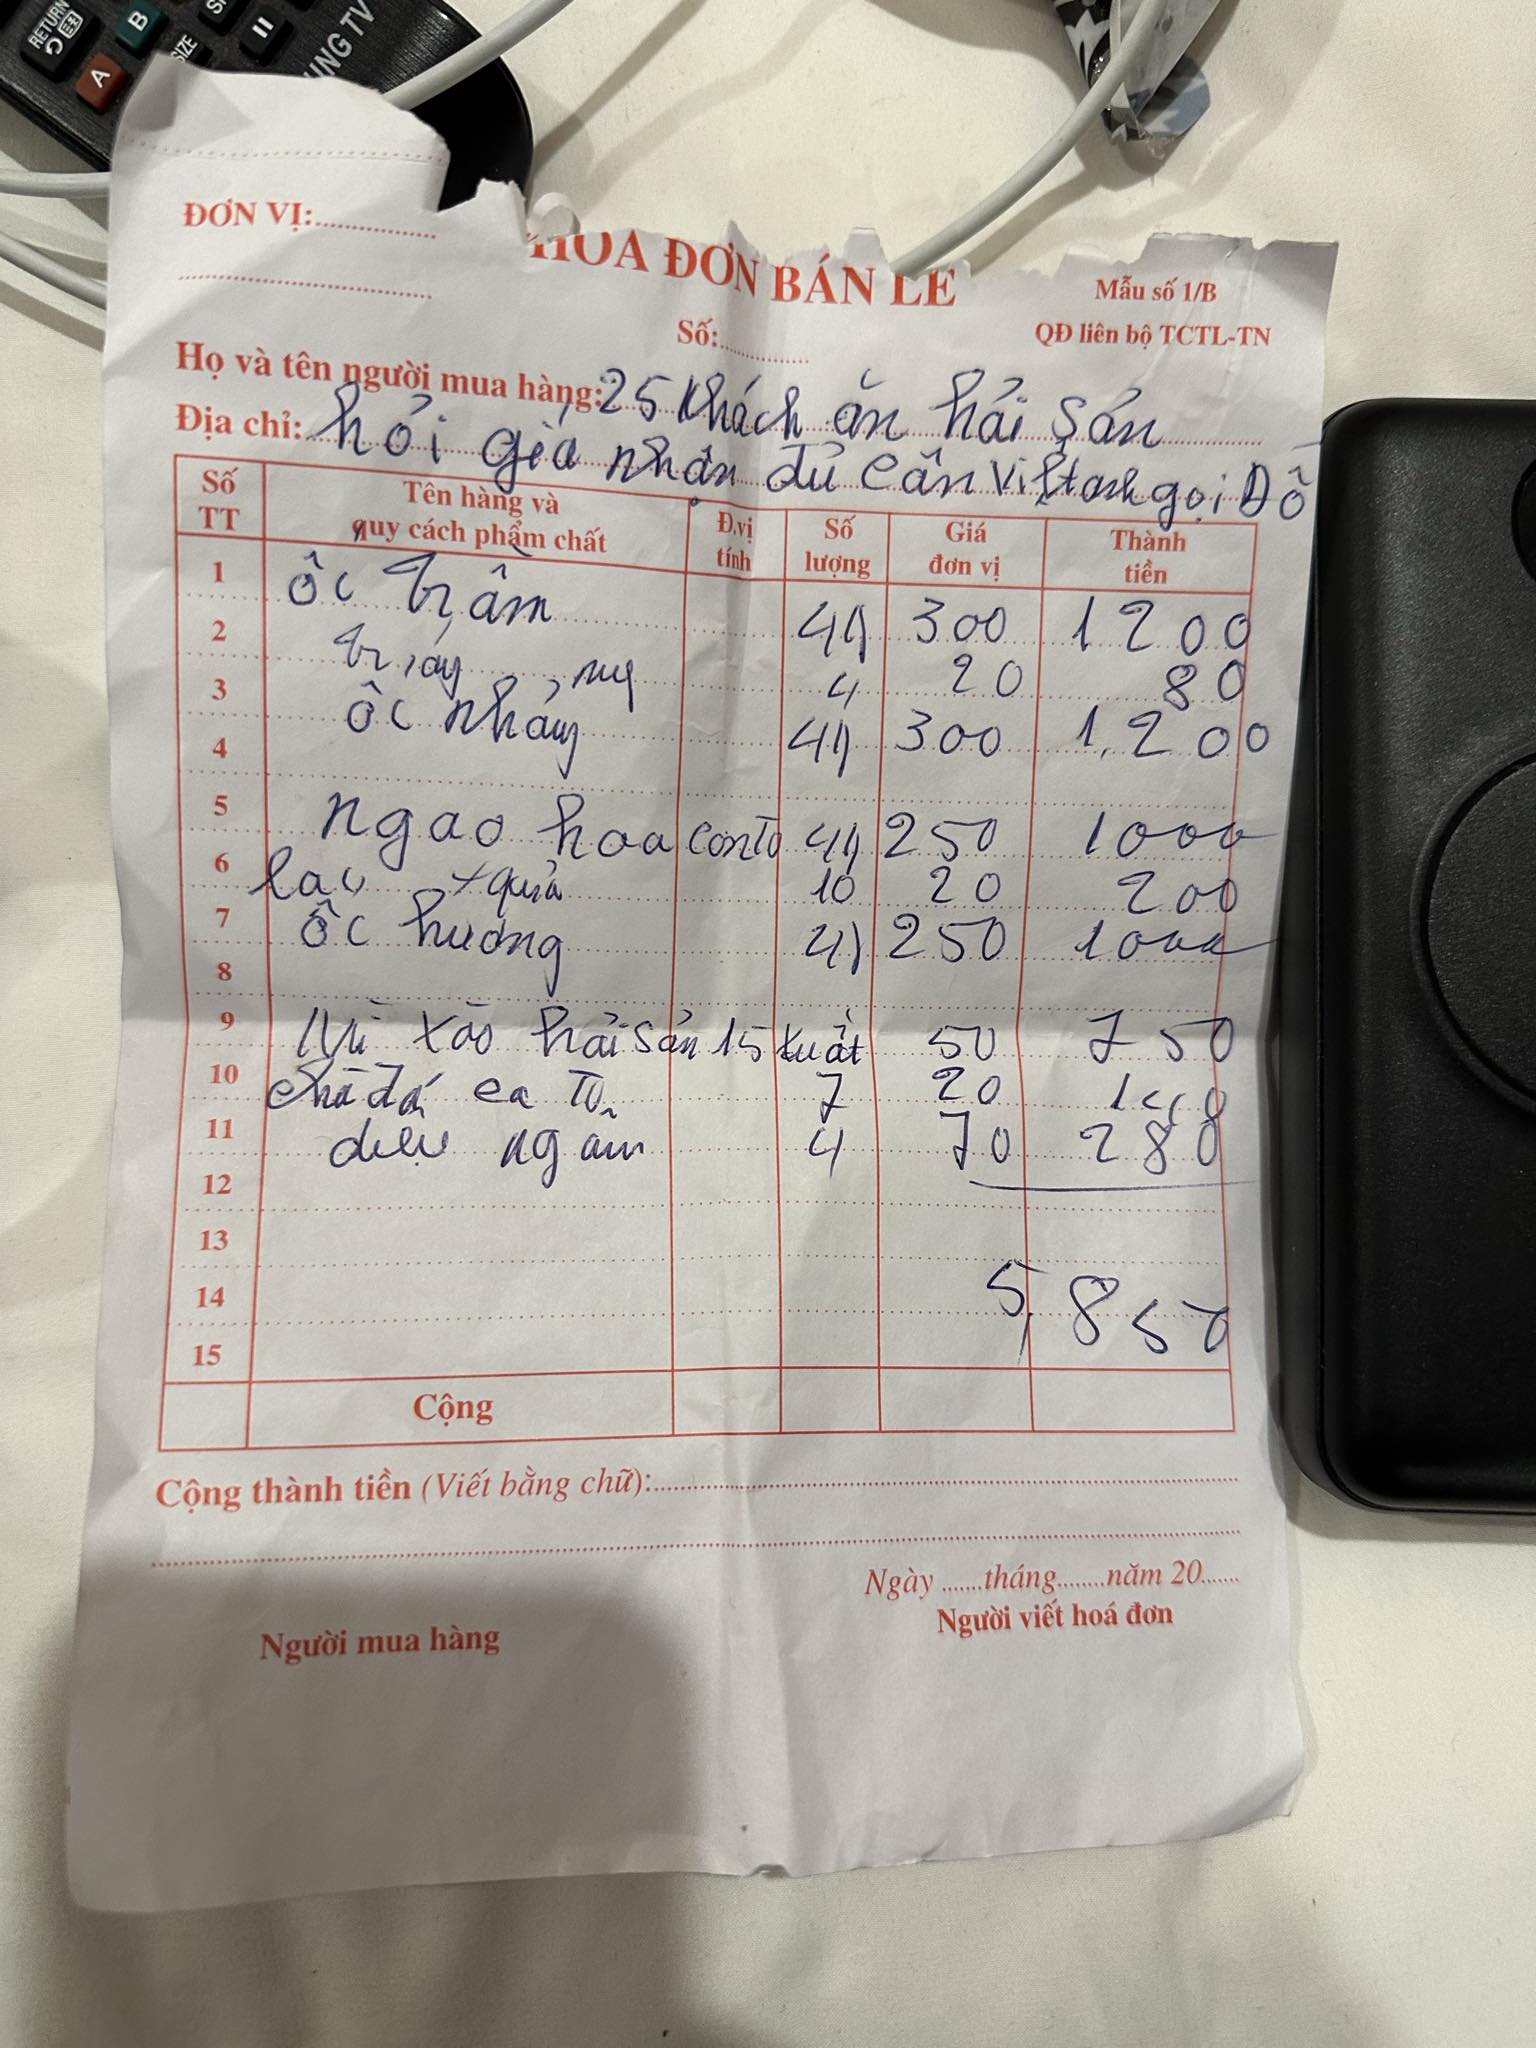 RETURN
A
B
SIZE
UNG TV
ĐƠN VỊ:
HÓA ĐƠN BÁN LẺ
Mẫu số 1/B
Số:
QĐ liên bộ TCTL-TN
Họ và tên người mua hàng: 25 Khách ăn hải sản
Địa chỉ: hỏi giá nhận đủ cân gọi Đồ
Số TT Tên hàng và quy cách phẩm chất Đ.vị tính Số lượng Giá đơn vị Thành tiền
1 ốc trầm 300 1200
2 4 20 80
3 ốc nhảy 300 1,200
4
5 ngao hoa con to 250 1000
6 lạc + quả 10 20 200
7 ốc hương 250 1000
8
9 Mì xào hải sản 15 xuất 50 750
10 chà đá ca to 7 20
11 ngâm 4 70 280
12
13
14 5,850
15
Cộng
Cộng thành tiền (Viết bằng chữ):
Ngày tháng năm 20
Người mua hàng
Người viết hoá đơn